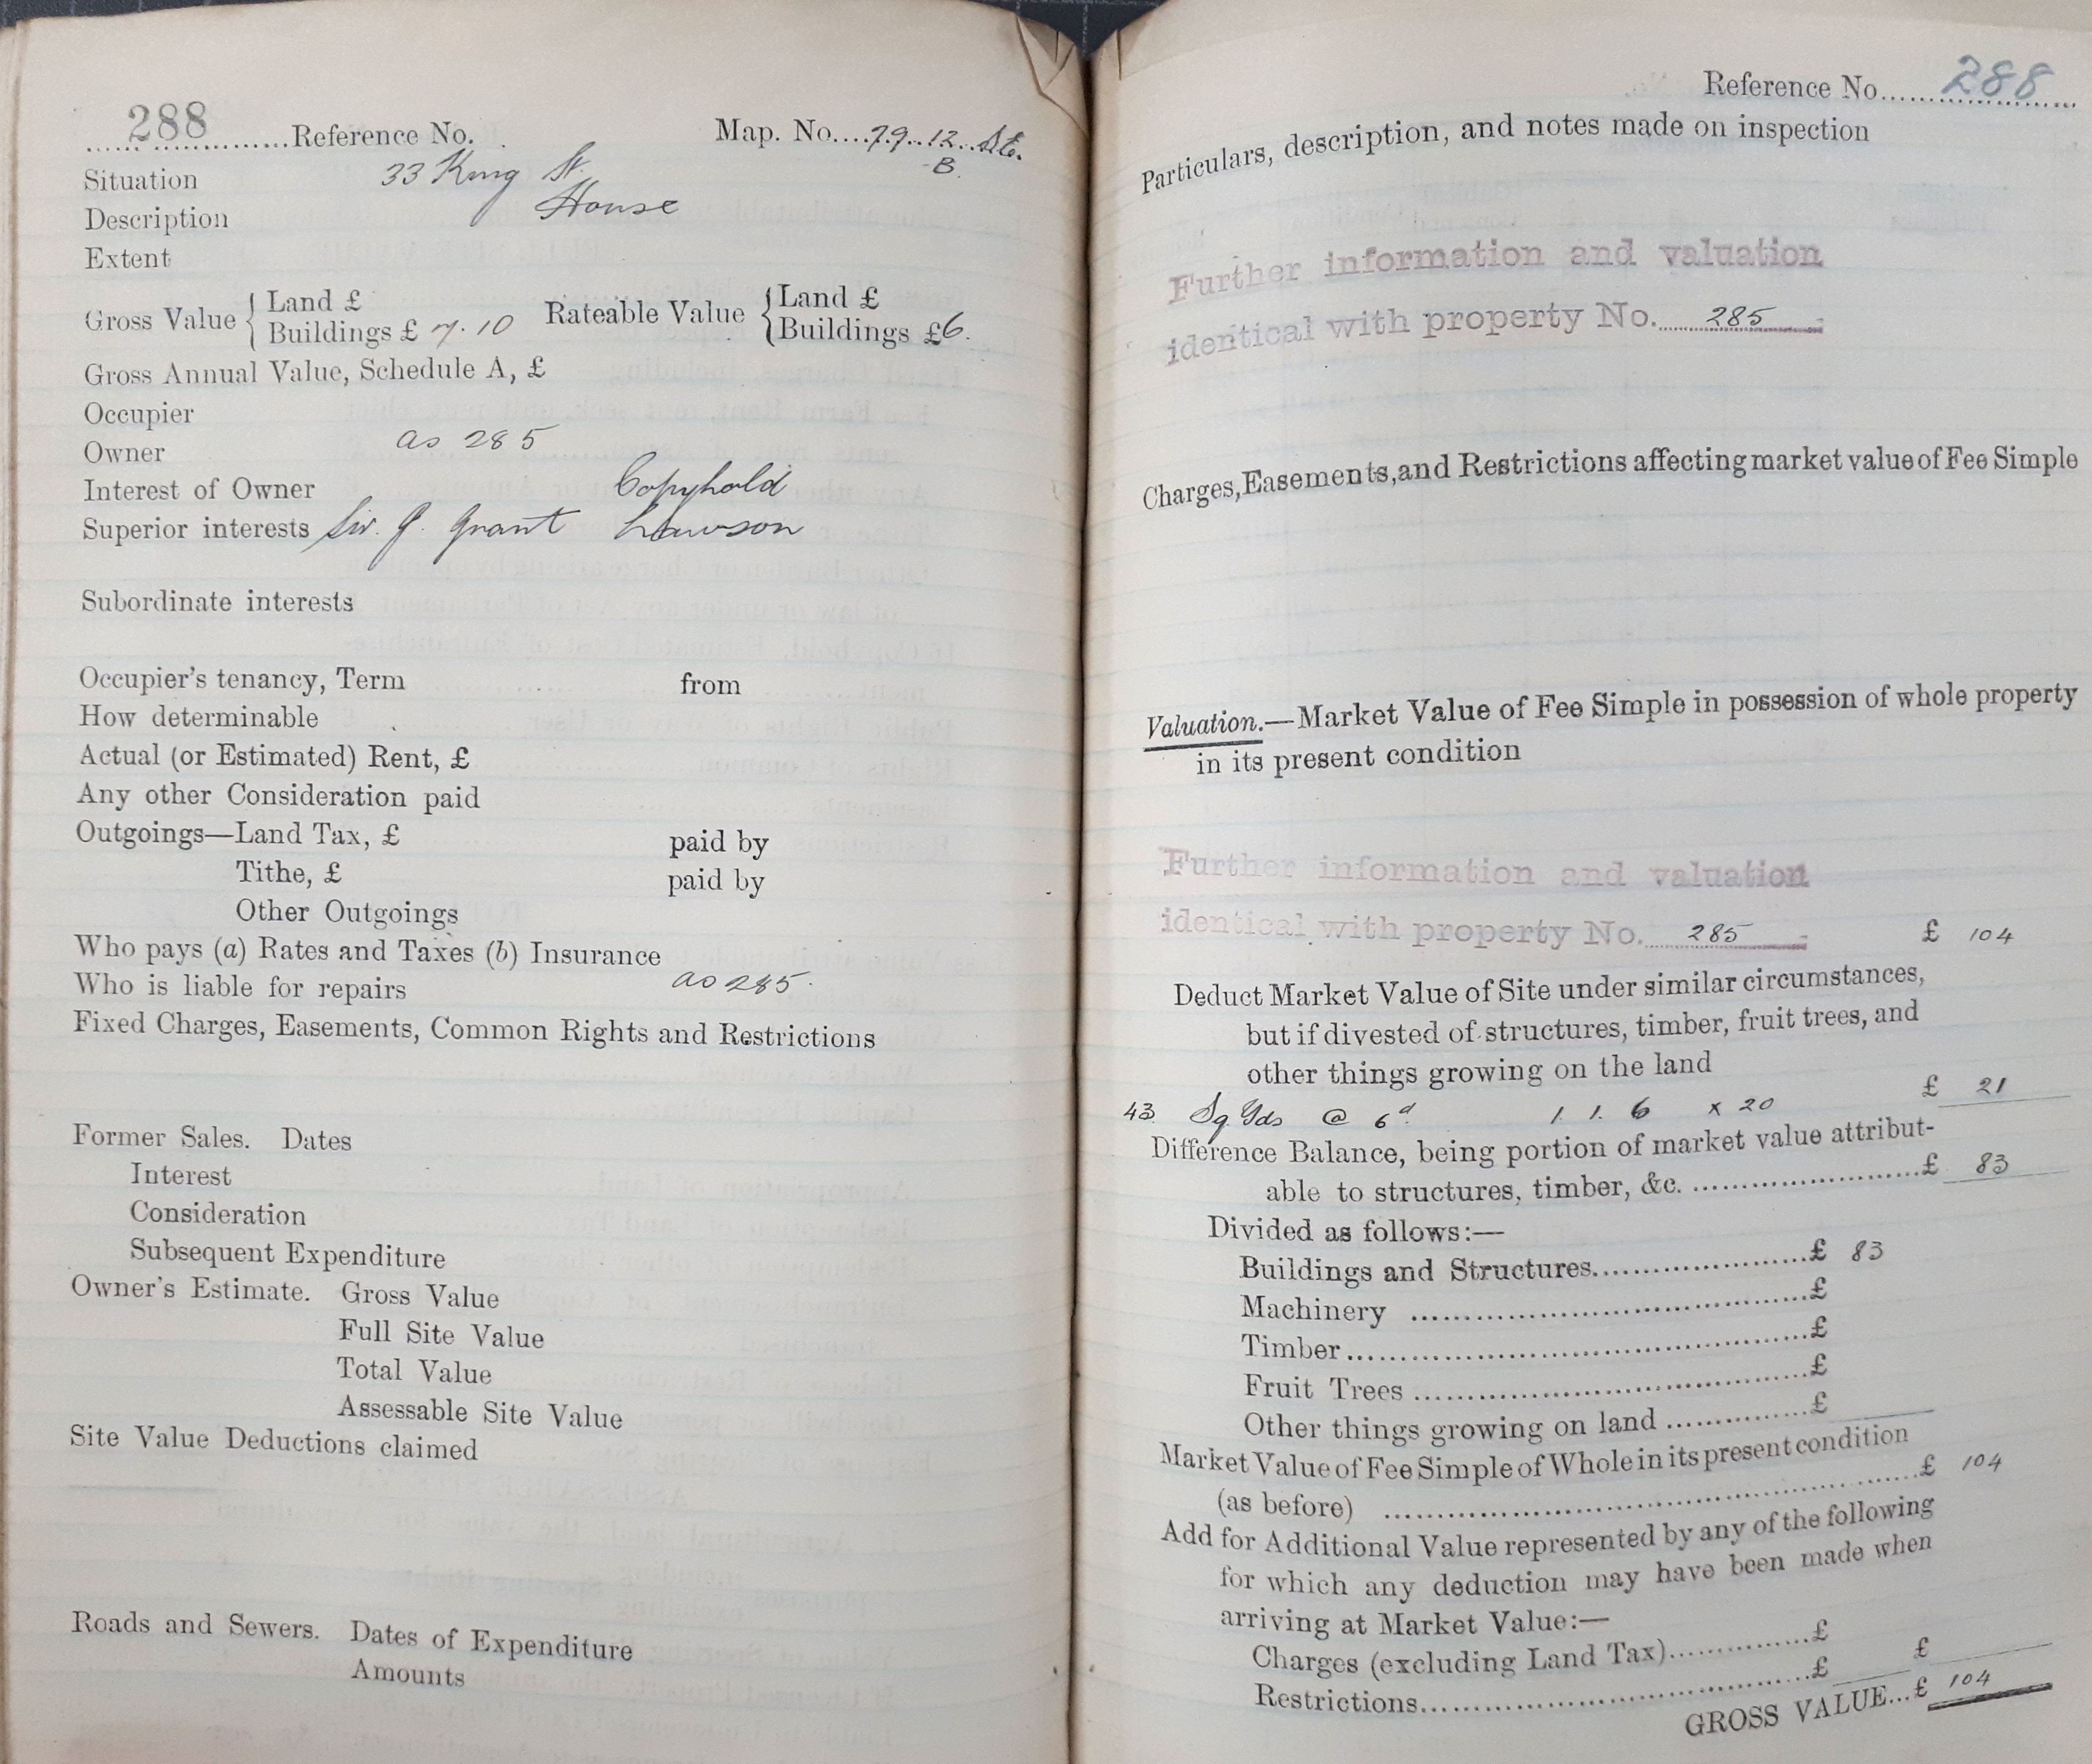 288 Reference No. Map. No. 79..12..S.E.
B.
Situation 33 King St.
Description House
Extent
Gross Value { Land £ Rateable Value { Land £
Buildings £ 7.10 Buildings £6.
Gross Annual Value, Schedule A, £
Occupier
Owner as 285
Interest of Owner Copyhold
Superior interests Sir. J. Grant Lawson
Subordinate interests
Occupier's tenancy, Term from
How determinable
Actual (or Estimated) Rent, £
Any other Consideration paid
Outgoings—Land Tax, £ paid by
Tithe, £ paid by
Other Outgoings
Who pays (a) Rates and Taxes (b) Insurance
Who is liable for repairs as 285.
Fixed Charges, Easements, Common Rights and Restrictions
Former Sales. Dates
Interest
Consideration
Subsequent Expenditure
Owner's Estimate. Gross Value
Full Site Value
Total Value
Assessable Site Value
Site Value Deductions claimed
Roads and Sewers. Dates of Expenditure
Amounts
Reference No. 288
Particulars, description, and notes made on inspection
Further information and valuation
identical with property No. 285
Charges, Easements, and Restrictions affecting market value of Fee Simple
Valuation.—Market Value of Fee Simple in possession of whole property
in its present condition
Further information and valuation
identical with property No. 285 £ 104
Deduct Market Value of Site under similar circumstances,
but if divested of structures, timber, fruit trees, and
other things growing on the land
43 Sq Yds @ 6d. 1. 1. 6 x 20 £ 21
Difference Balance, being portion of market value attribut-
able to structures, timber, &c. £ 83
Divided as follows:—
Buildings and Structures £ 83
Machinery £
Timber £
Fruit Trees £
Other things growing on land £
Market Value of Fee Simple of Whole in its present condition
(as before) £ 104
Add for Additional Value represented by any of the following
for which any deduction may have been made when
arriving at Market Value:—
Charges (excluding Land Tax) £
Restrictions £ £
GROSS VALUE...£ 104